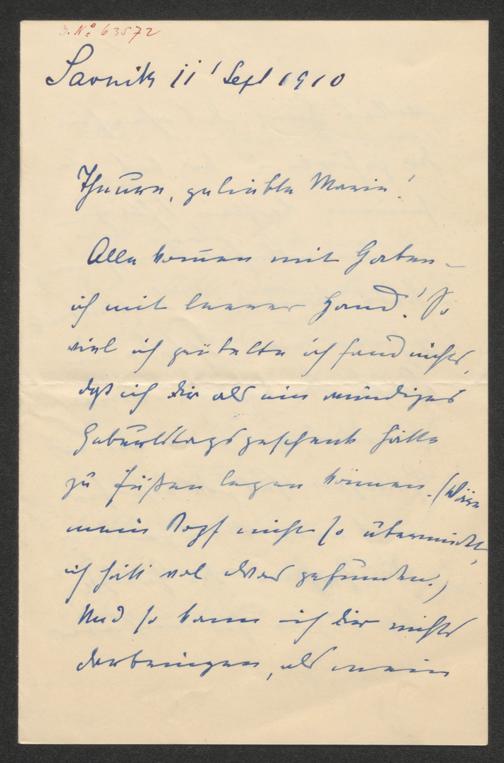 J. No 63572
Savnik 11' Sept 1910
Theuere, geliebte Marie!
Alle kom̄en mit Gaben –
ich mit leerer Hand! So
viel ich grübelte ich fand nichts,
daß ich Dir als ein würdiges
Geburtstagsgeschenk hätte
zu Füßen legen können. (Wäre
mein Kopf nicht so übermüdet,
ich hätt wol etwas gefunden.)
Und so kann ich Dir nichts
darbringen, als mein